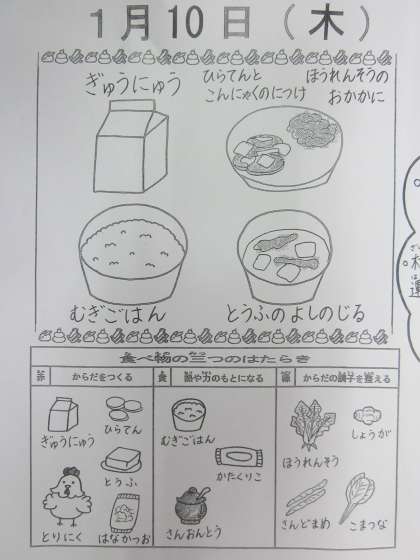 1月10日（木）
ぎゅうにゅう
ひらてんと
こんにゃくのにつけ
ほうれんそうの
おかかに
むぎごはん
とうふのよしのじる
食べ物の三つのはたらき
赤 からだをつくる
熱や力のもとになる
からだの調子を整える
ぎゅうにゅう
ひらてん
とうふ
とりにく
はなかつお
むぎごはん
かたくりこ
さんおんとう
ほうれんそう
しょうが
さんどまめ
こまつな